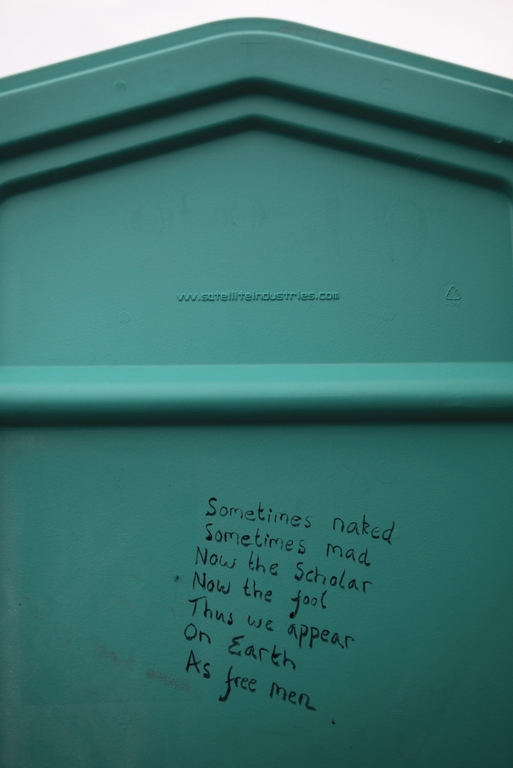 www.satelliteindustries.com
Sometimes naked
Sometimes mad
Now the Scholar
Now the fool
Thus we appear
On Earth
As free men.